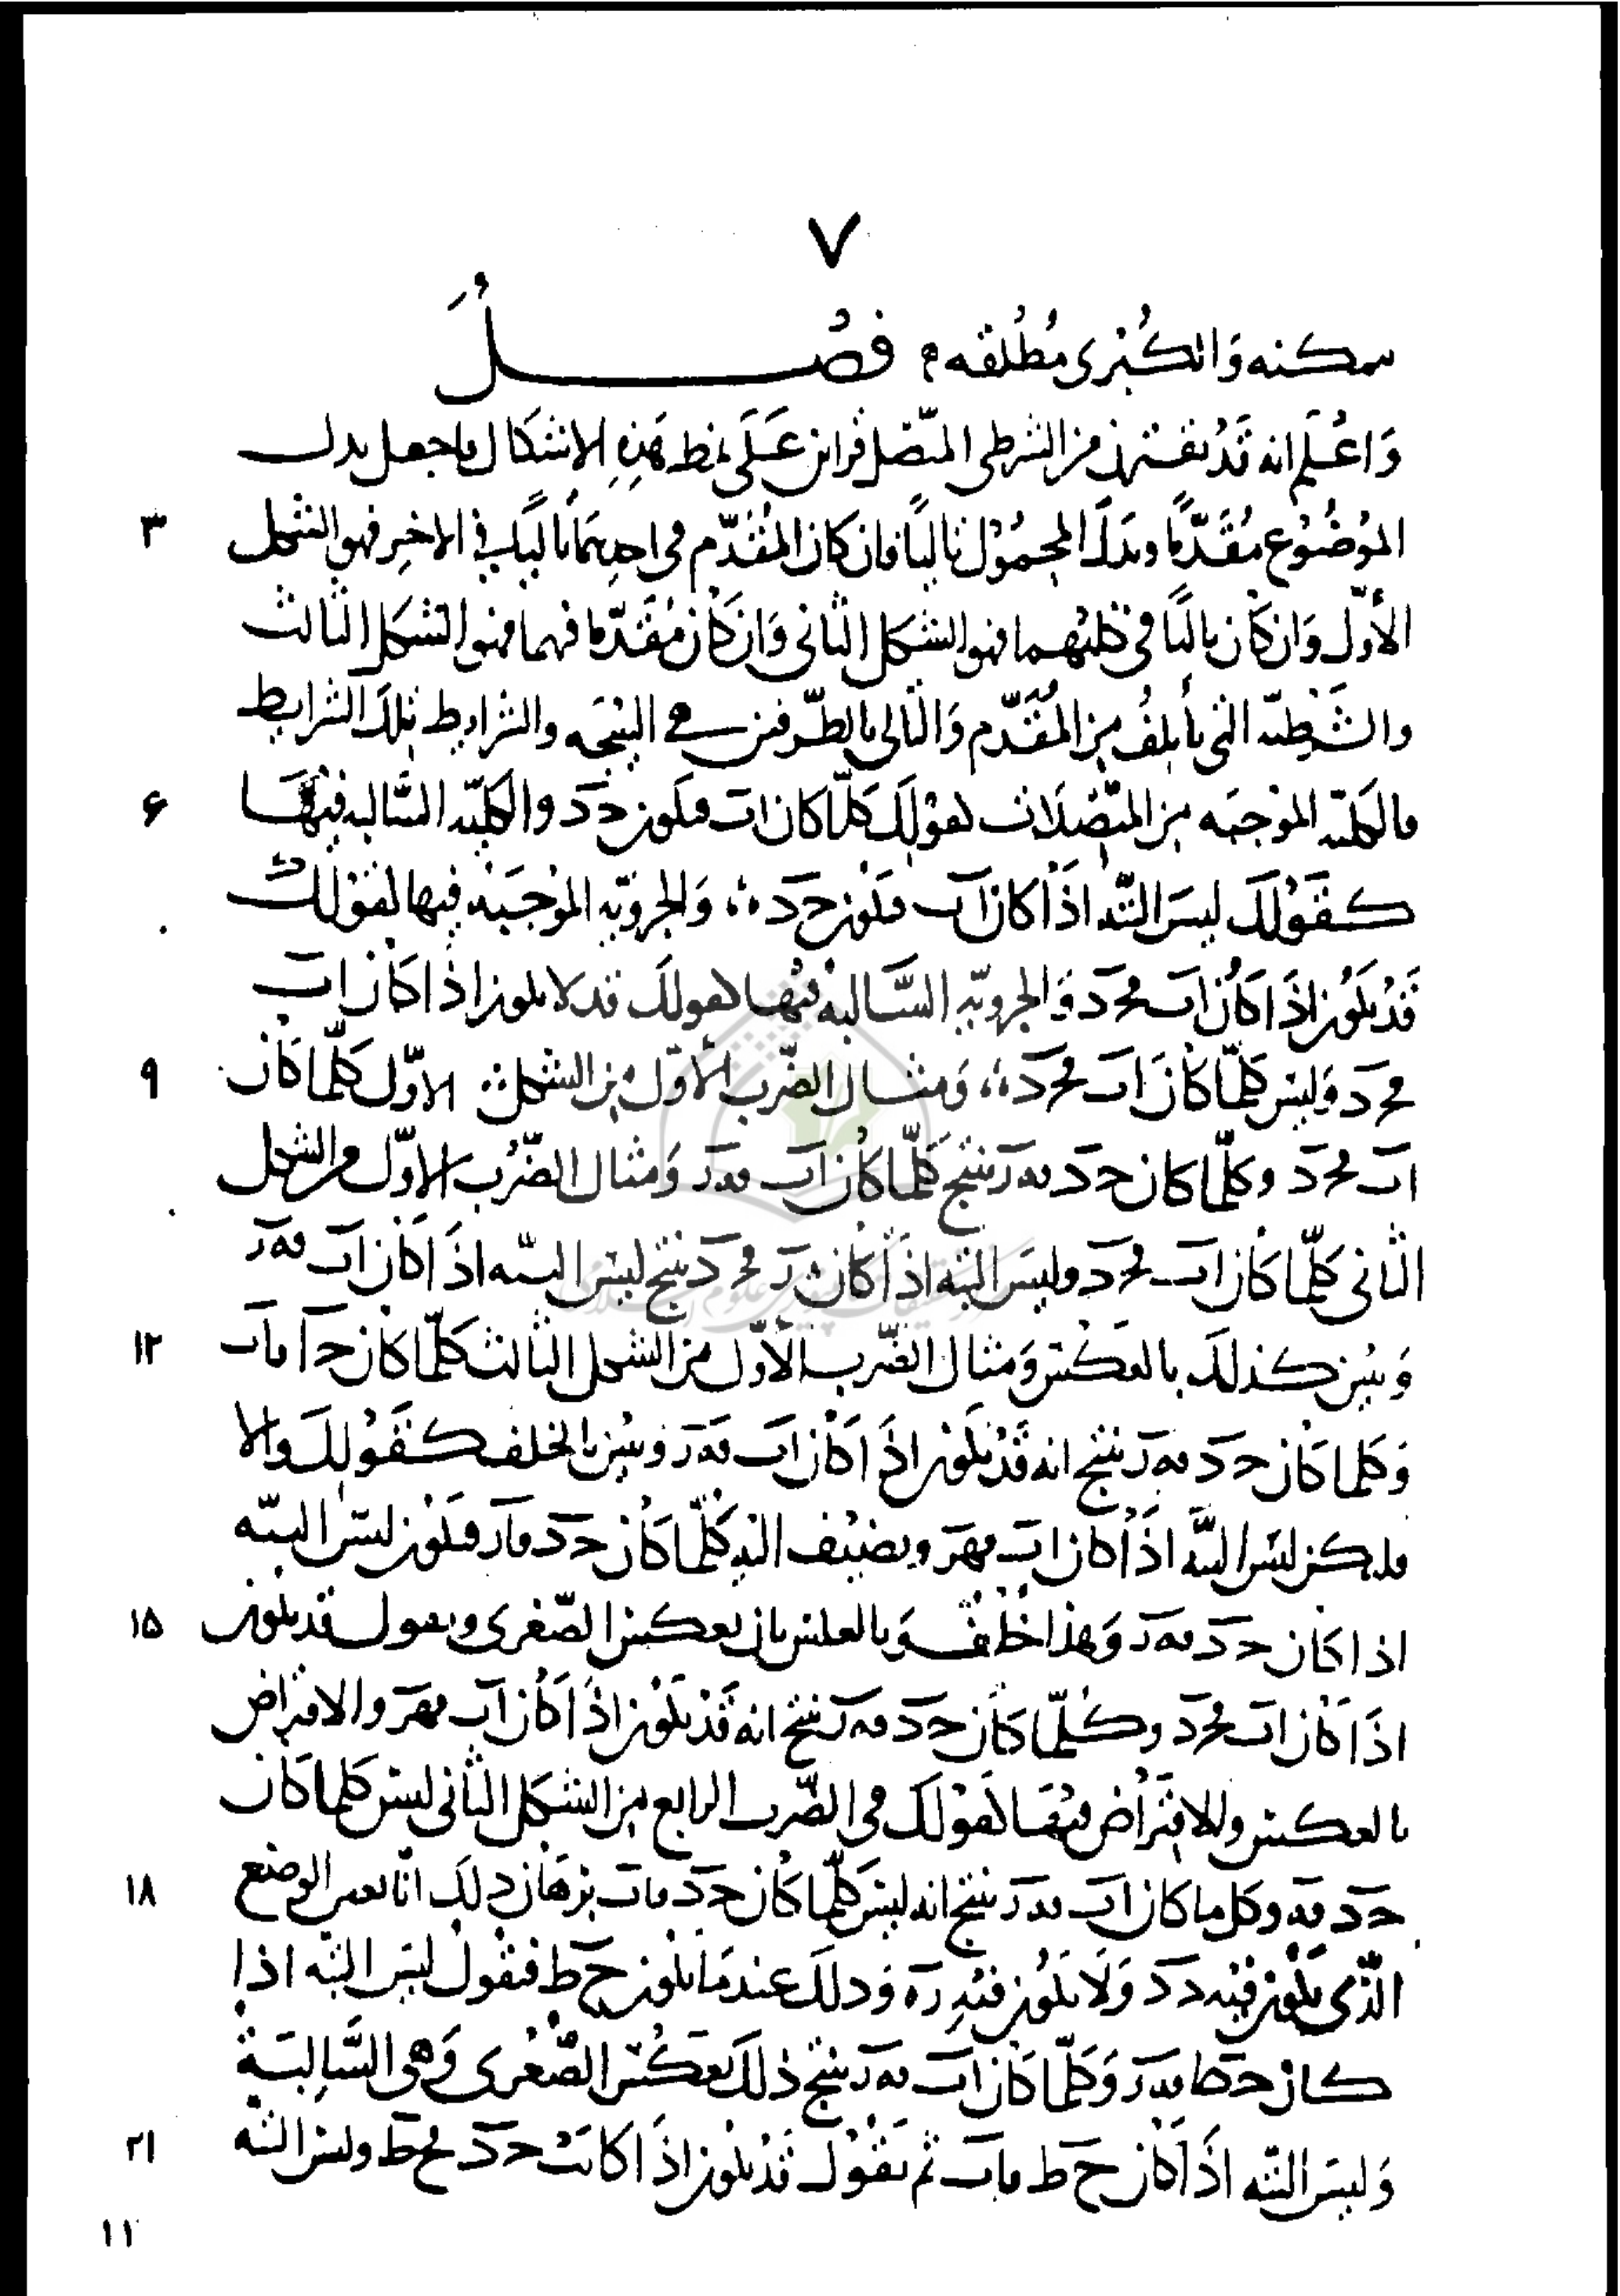 ٧
ممكنه وَالكُبْرى مُطْلقه م فصْــــــلُ
وَاعْلم انه قَدْ يقترن من الشرطى المتّصل قراين عَلَى نمط هَذِهِ الاشكال ماجعل بدل
٣ الموْضُوْع مُقَدّمًا وبَدَلَ المحمُوْل تاليًا فان كان المُقَدّم فى احدِيهمَا تاليًا فى الاخير فهو الشكل
الأوّل وَان كَان تاليًا فى كليْهما فهو الشكل الثانى وَان كَان مُقَدّمًا فيهما فهو الشكل الثالث
والشَرْطِيّه التى تأتلِفُ مِن المُقَدّم وَالتّالى بالطّرفين هى النتيجَه والشرايط تلكَ الشرايط
۶ فالكليّه الموْجبَه مِن المتّصِلَات كقوْلِكَ كلّما كان اب فيكون جد والكليّه السّالبه فيْهَا
كقَوْلكَ ليسَ البتّه اذَا كان اب فيكون جد وَالجزويّه الموْجَبَه فيها كقوْلك
قَدْ يكوْن اذَا كَان اب فجد وَالجزويّه السّالبه فيْها كقولك قد لا يكون اذا كان اب
٩ فجد وَليْس كلّما كَان اب فجد وَمثال الضّرب الأوّل مِن الشكل الاوّل كلّما كان
اب فجد وكلّما كان جد فهز ينتج كلّما كان اب فهز وَمثال الضّرْب الاوّل من الشكل
الثانى كلّما كان اب فجد وليسَ البته اذَا كان هز فجد ينتج ليسَ البتّه اذَا كان اب فهز
١٢ وَيبين كذلك بالعَكْس وَمثال الضّرب الأوّل من الشكل الثالث كلّما كان جد فاب
وَكلما كان جد فهز ينتج انه قَدْ يكوْن اذَا كان اب فهز وَيبين بالخلف كقَوْلِكَ والا
فليكن ليْسَ البتَّه اذَا كان اب فهز ويضيْف اليه كُلّما كَان جد فاب فيكوْن ليسَ البتّه
١۵ اذا كان جد فهز وَهذا خُلْفٌ وَبالعكس بان يعكس الصّغرى ويقول قد يكون
اذَا كان اب فجد وكلّما كان جد فهز ينتج انه قَدْ يكوْن اذَا كان اب فهز والافتراض
بالعكس وللافتَراض فيهَا كقوْلكَ فى الضّرب الرابع مِن الشكل الثانى ليس كلما كان
١٨ جد فهز وكل ما كان اب فهز ينتج انه ليسَ كلّما كان جد فاب برهَان ذلك انّا نعين الوضع
الذّى يكون فيْه جد وَلَا يكوْن فيْه هز وَذلكَ عند مَا يكون حط فنقول ليسَ البتّه اذا
كان حط فهز وَكلّما كان اب فهز ينتج ذلكَ بعَكس الصّغرى وَهى السَّالِبَة
٢١ وَليسَ البتّه اذَا كان حط فاب ثم نقوْل قَدْ يكون اذَا كانت جد فحط وليس البتّه
١١